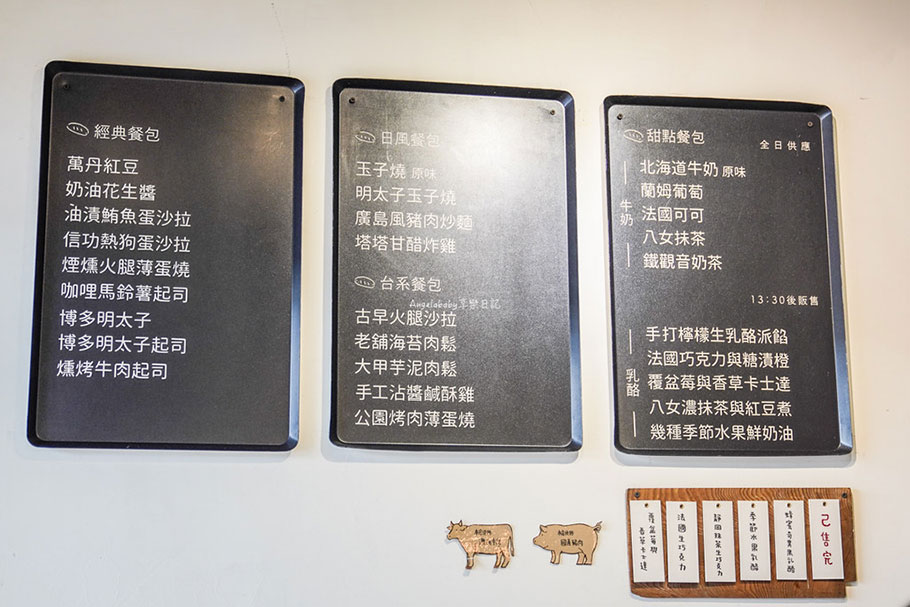 經典餐包
萬丹紅豆
奶油花生醬
油漬鮪魚蛋沙拉
信功熱狗蛋沙拉
煙燻火腿薄蛋燒
咖哩馬鈴薯起司
博多明太子
博多明太子起司
燻烤牛肉起司
日風餐包
玉子燒 原味
明太子玉子燒
廣島風豬肉炒麵
塔塔甘醋炸雞
台系餐包
Angelababy享樂日記
古早火腿沙拉
老舖海苔肉鬆
大甲芋泥肉鬆
手工沾醬鹹酥雞
公園烤肉薄蛋燒
甜點餐包
全日供應
牛奶
北海道牛奶 原味
蘭姆葡萄
法國可可
八女抹茶
鐵觀音奶茶
13:30後販售
乳酪
手打檸檬生乳酪派餡
法國巧克力與糖漬橙
覆盆莓與香草卡士達
八女濃抹茶與紅豆煮
幾種季節水果鮮奶油
已售完
蜂蜜奇異果乳酪
季節水果乳酪
靜岡抹茶生巧克力
法國生巧克力
覆盆莓與
香草卡士達
國產豬肉